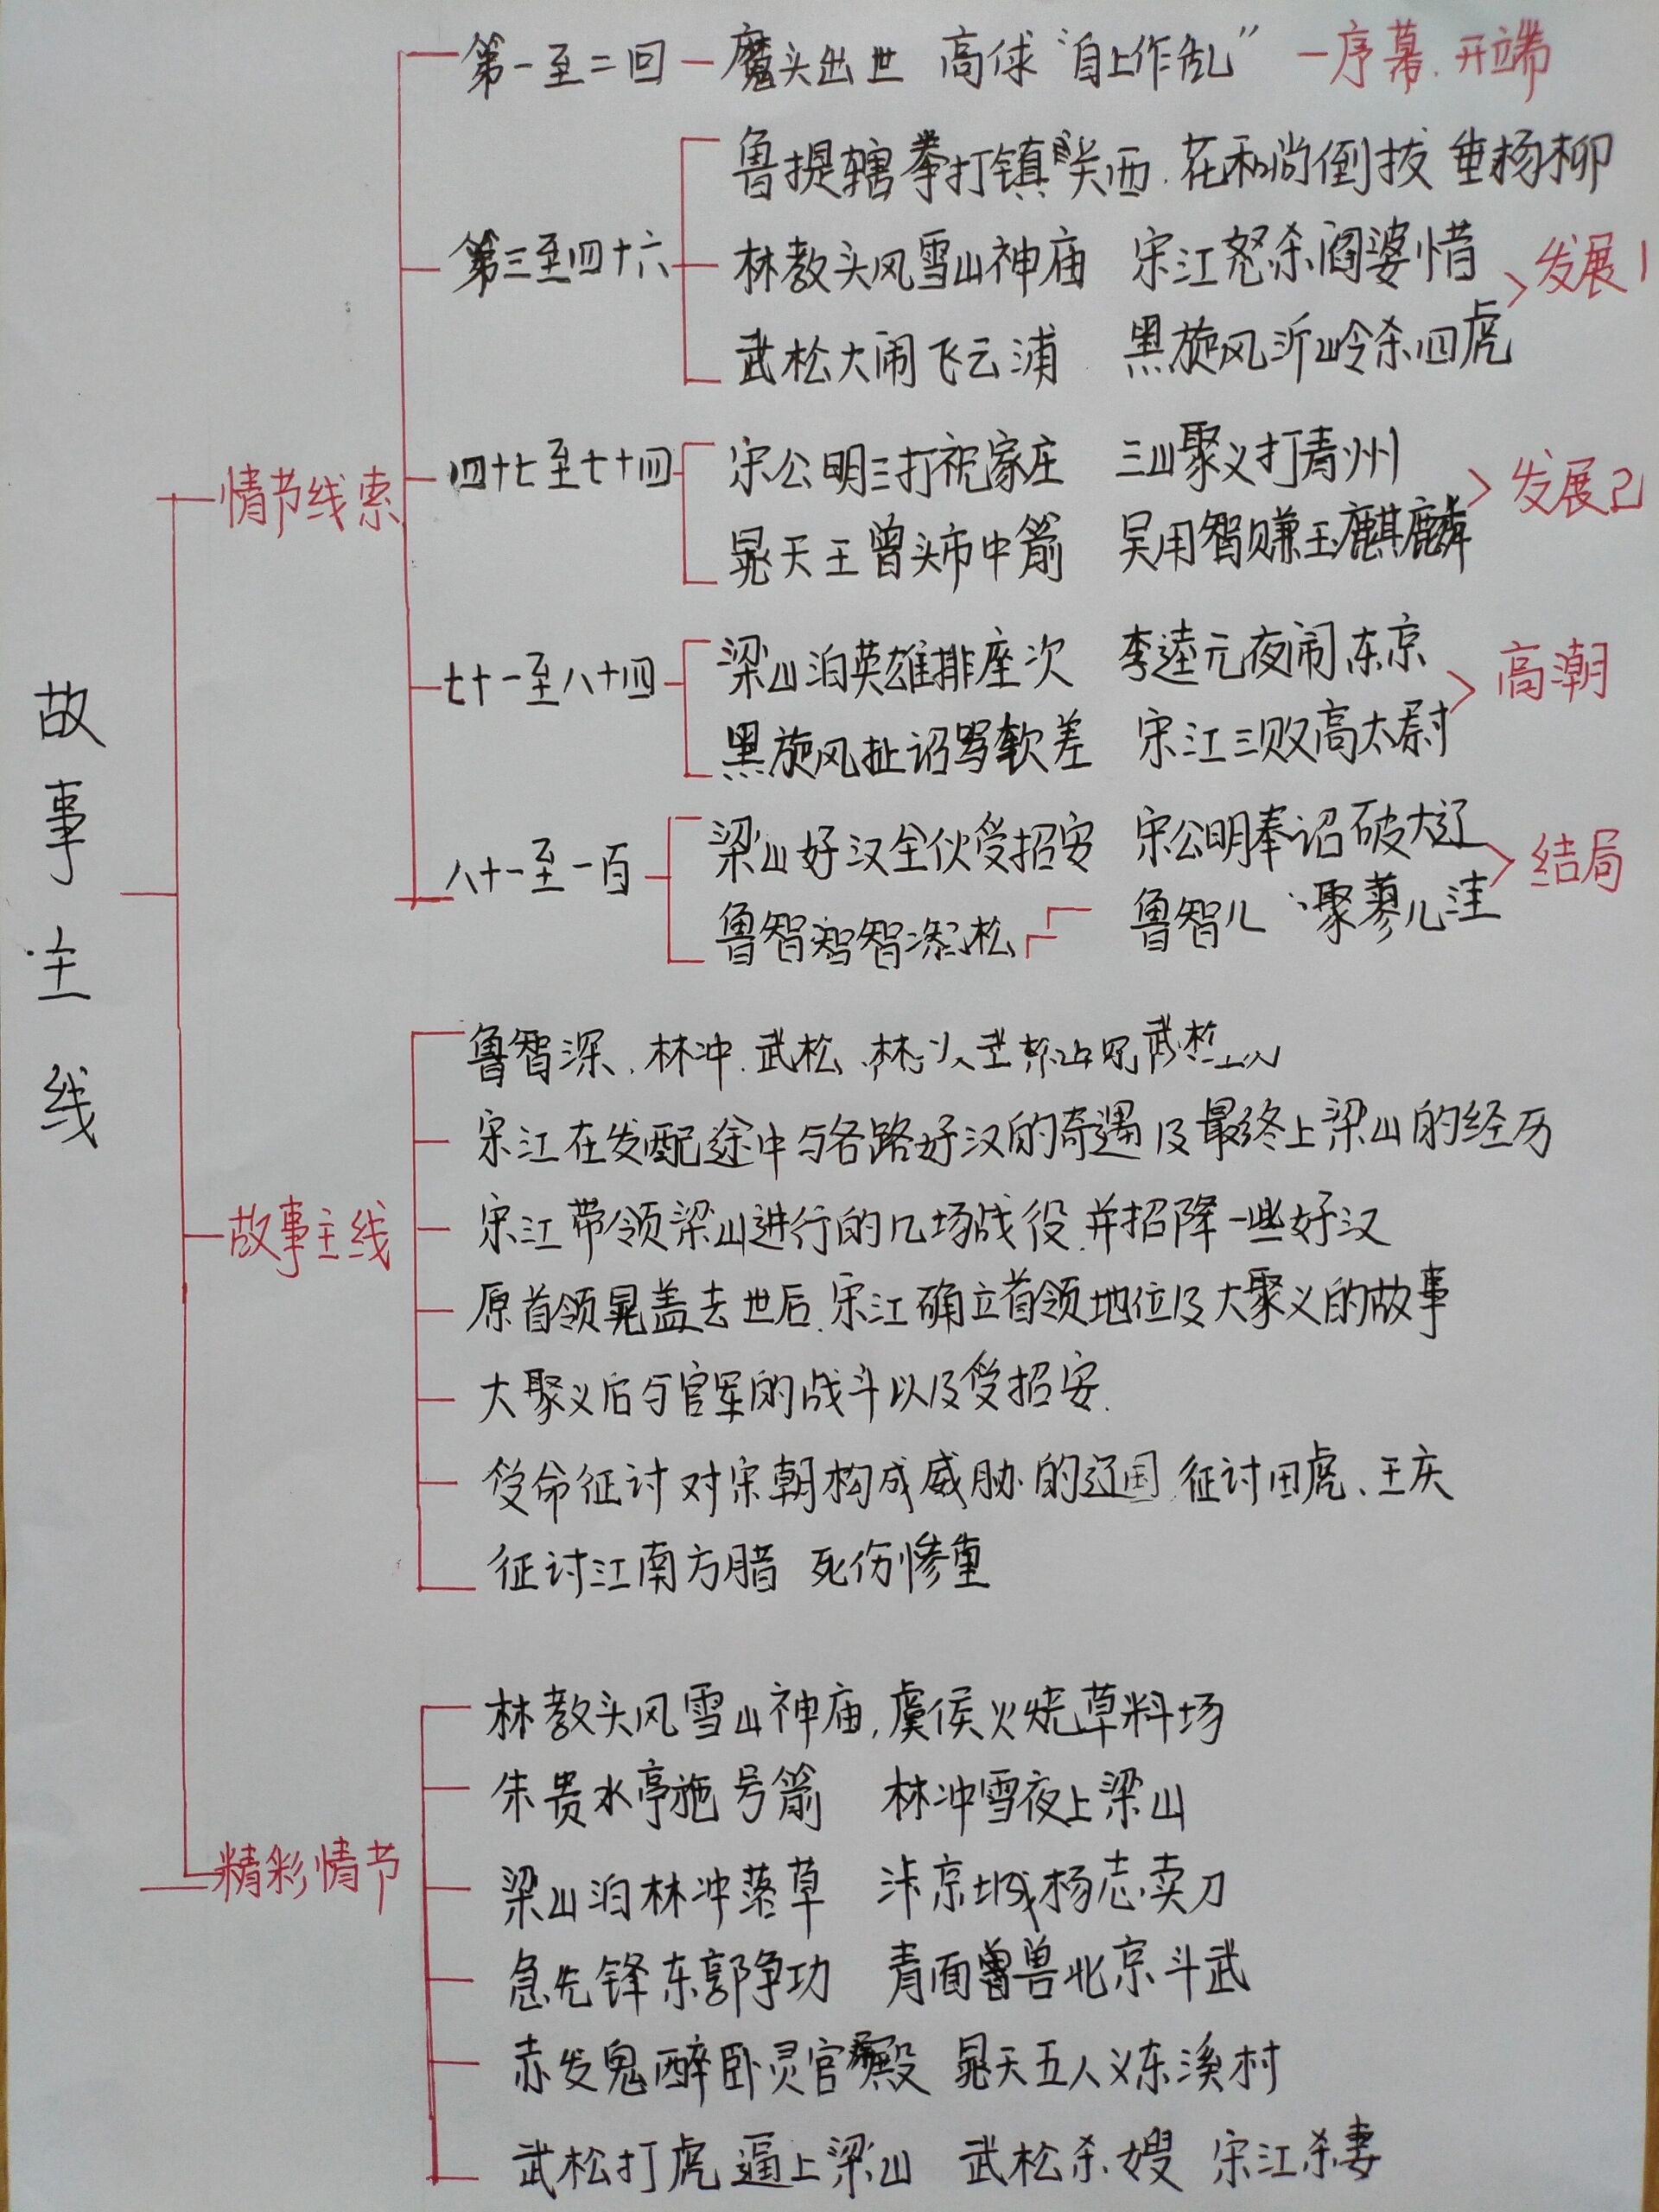 故事主线
情节线索
第一至二回 魔头出世 高俅"自上作乱" 序幕.开端
第三至四十六
鲁提辖拳打镇关西.花和尚倒拔垂杨柳
林教头风雪山神庙 宋江怒杀阎婆惜
武松大闹飞云浦 黑旋风沂岭杀四虎
发展1
四十七至七十四
宋公明三打祝家庄 三山聚义打青州
晁天王曾头市中箭 吴用智赚玉麒麟
发展2
七十一至八十四
梁山泊英雄排座次 李逵元夜闹东京
黑旋风扯诏骂钦差 宋江三败高太尉
高潮
八十一至一百
梁山好汉全伙受招安 宋公明奉诏破大辽
鲁智 松 鲁智 聚蓼儿洼
结局
故事主线
鲁智深.林冲.武松
宋江在发配途中与各路好汉的奇遇及最终上梁山的经历
宋江带领梁山进行的几场战役.并招降一些好汉
原首领晁盖去世后.宋江确立首领地位及大聚义的故事
大聚义后与官军的战斗以及受招安.
受命征讨对宋朝构成威胁的辽国 征讨田虎、王庆
征讨江南方腊 死伤惨重
精彩情节
林教头风雪山神庙,虞侯火烧草料场
朱贵水亭施号箭 林冲雪夜上梁山
梁山泊林冲落草 汴京城杨志卖刀
急先锋东郭争功 青面兽北京斗武
赤发鬼醉卧灵官殿 晁天五人义东溪村
武松打虎 逼上梁山 武松杀嫂 宋江杀妻